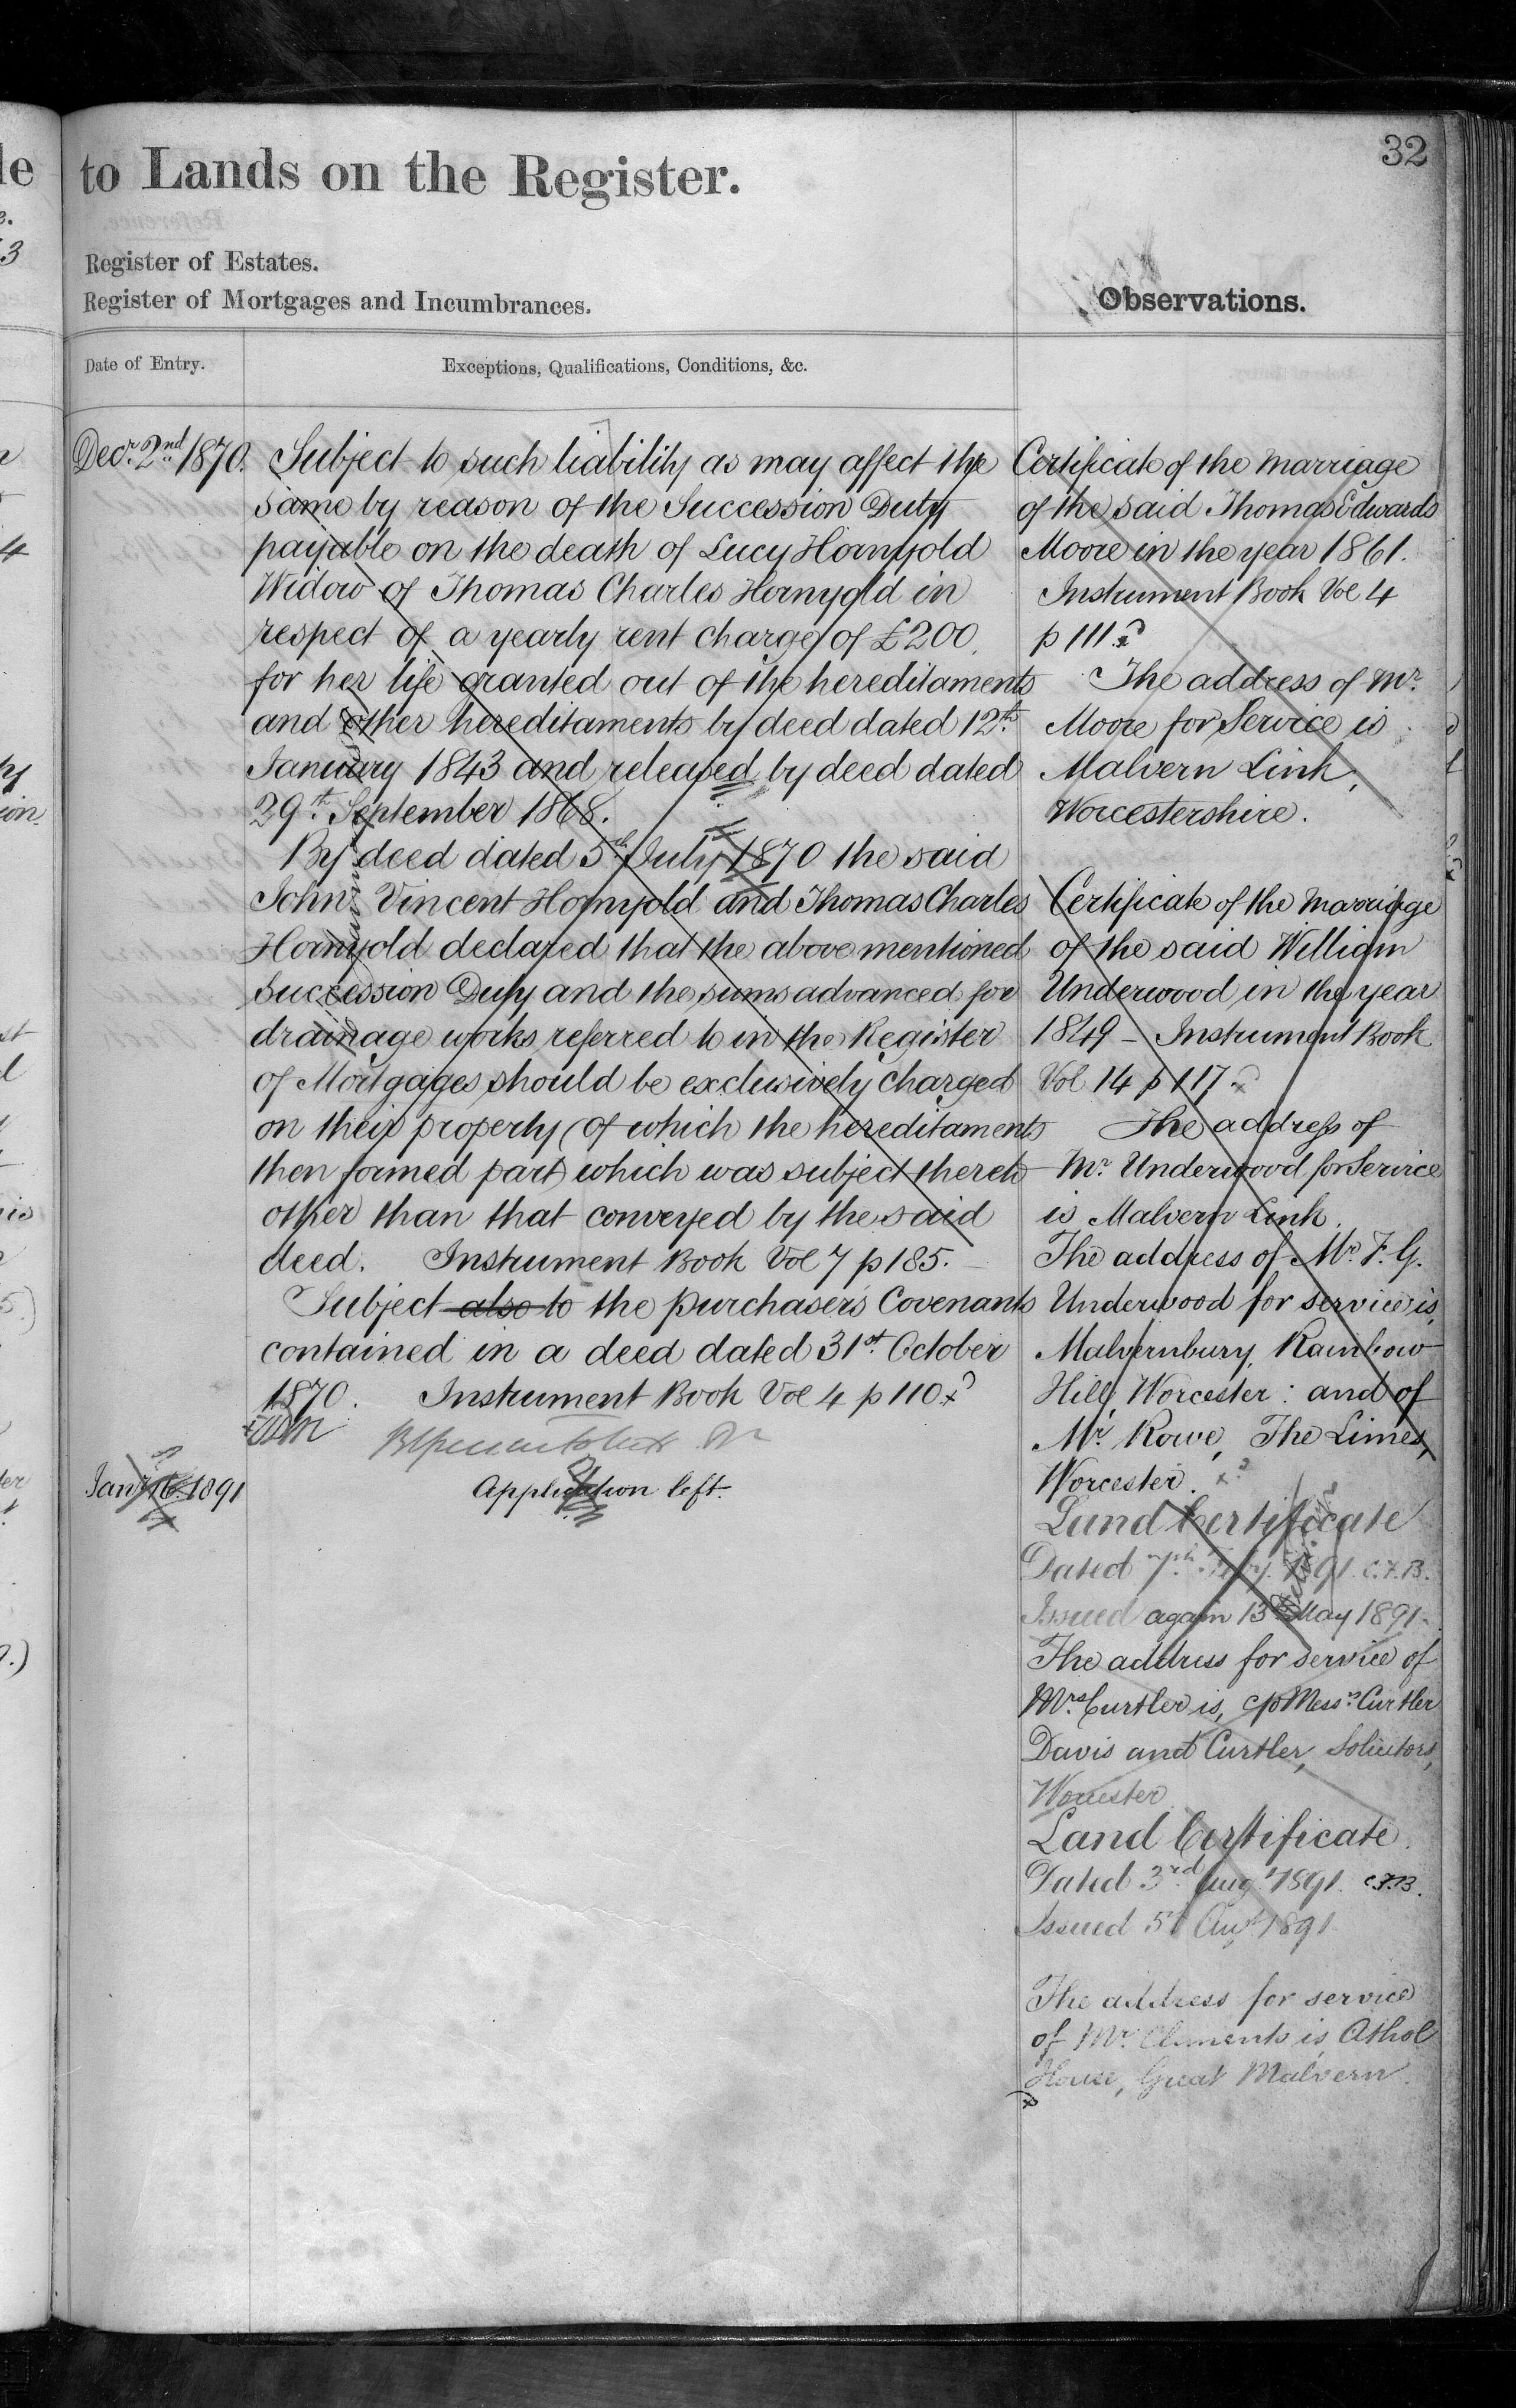 32
to Lands on the Register.
Register of Estates.
Register of Mortgages and Incumbrances.
Observations.
Date of Entry.
Exceptions, Qualifications, Conditions, &c.
Decr. 2nd 1870.
Subject to such liability as may affect the
same by reason of the Succession Duty
payable on the death of Lucy Hornyold
Widow of Thomas Charles Hornyold in
respect of a yearly rent charge of £200
for her life granted out of the hereditaments
and other hereditaments by deed dated 12th.
January 1843 and released by deed dated
29th. September 1868.
By deed dated 5th July 1870 the said
John Vincent Hornyold and Thomas Charles
Hornyold declared that the above mentioned
Succession Duty and the sums advanced for
drainage works referred to in the Register
of Mortgages should be exclusively charged
on their property (of which the hereditaments
then formed part) which was subject thereto
other than that conveyed by the said
deed. Instrument Book Vol 7 p 185.
Subject also to the purchasers Covenants
contained in a deed dated 31st. October
1870. Instrument Book Vol 4 p 110.
Jany. 16. 1891
Application left.
Certificate of the marriage
of the said Thomas Edwards
Moore in the year 1861.
Instrument Book Vol 4
p 111.
The address of Mr.
Moore for Service is
Malvern Link,
Worcestershire.
Certificate of the Marriage
of the said William
Underwood in the year
1849 – Instrument Book
Vol 14 p 117.
The address of
Mr. Underwood for Service
is Malvern Link.
The address of Mr. F. G.
Underwood for service is,
Malvernbury, Rainbow
Hill, Worcester: and of
Mr. Rowe, The Limes,
Worcester.
Land Certificate
Dated 7th Feby. 1891. C.F.B.
Issued again 13 May 1891.
The address for service of
Mrs. Curtler is, c/o Messrs. Curtler
Davis and Curtler, Solicitors,
Worcester
Land Certificate.
Dated 3rd Augt. 1891. C.F.B.
Issued 5th Augt. 1891.
The address for service
of Mr. Clements is, Athol
House, Great Malvern.